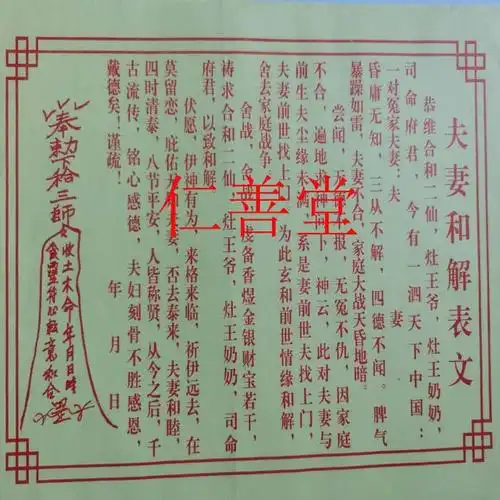 夫妻和解表文
恭维合和二仙，灶王爷，灶王奶奶，
司命府君，今有一泗天下中国：
一对冤家夫妻：夫　妻
昏庸无知，三从不解，四德不闻。脾气
暴躁如雷，夫妻不合，家庭大战天昏地暗。
尝闻，无 不报，无冤不仇，因家庭
不合，遍地求神 下，神云，此对夫妻与
前生夫尘缘未满 系是妻前世夫找上门，
夫妻前世找上 为此玄和前世情缘和解，
舍去家庭战争
舍战，金战 浅备香煜金银财宝若干，
祷求合和二仙，灶王爷，灶王奶奶，司命
府君，以致和解
伏愿，伊神有为 来格来临，祈伊远去，在
莫留恋，庇佑 妻，否去泰来，夫妻和睦，
四时清泰，八节平安，人皆称贤，从今之后，千
古流传，铭心感德，夫妇刻骨不胜感恩，
戴德矣！谨疏！
年　月　日
奉勅下 三師
收土木命 年月日時
合
仁善堂